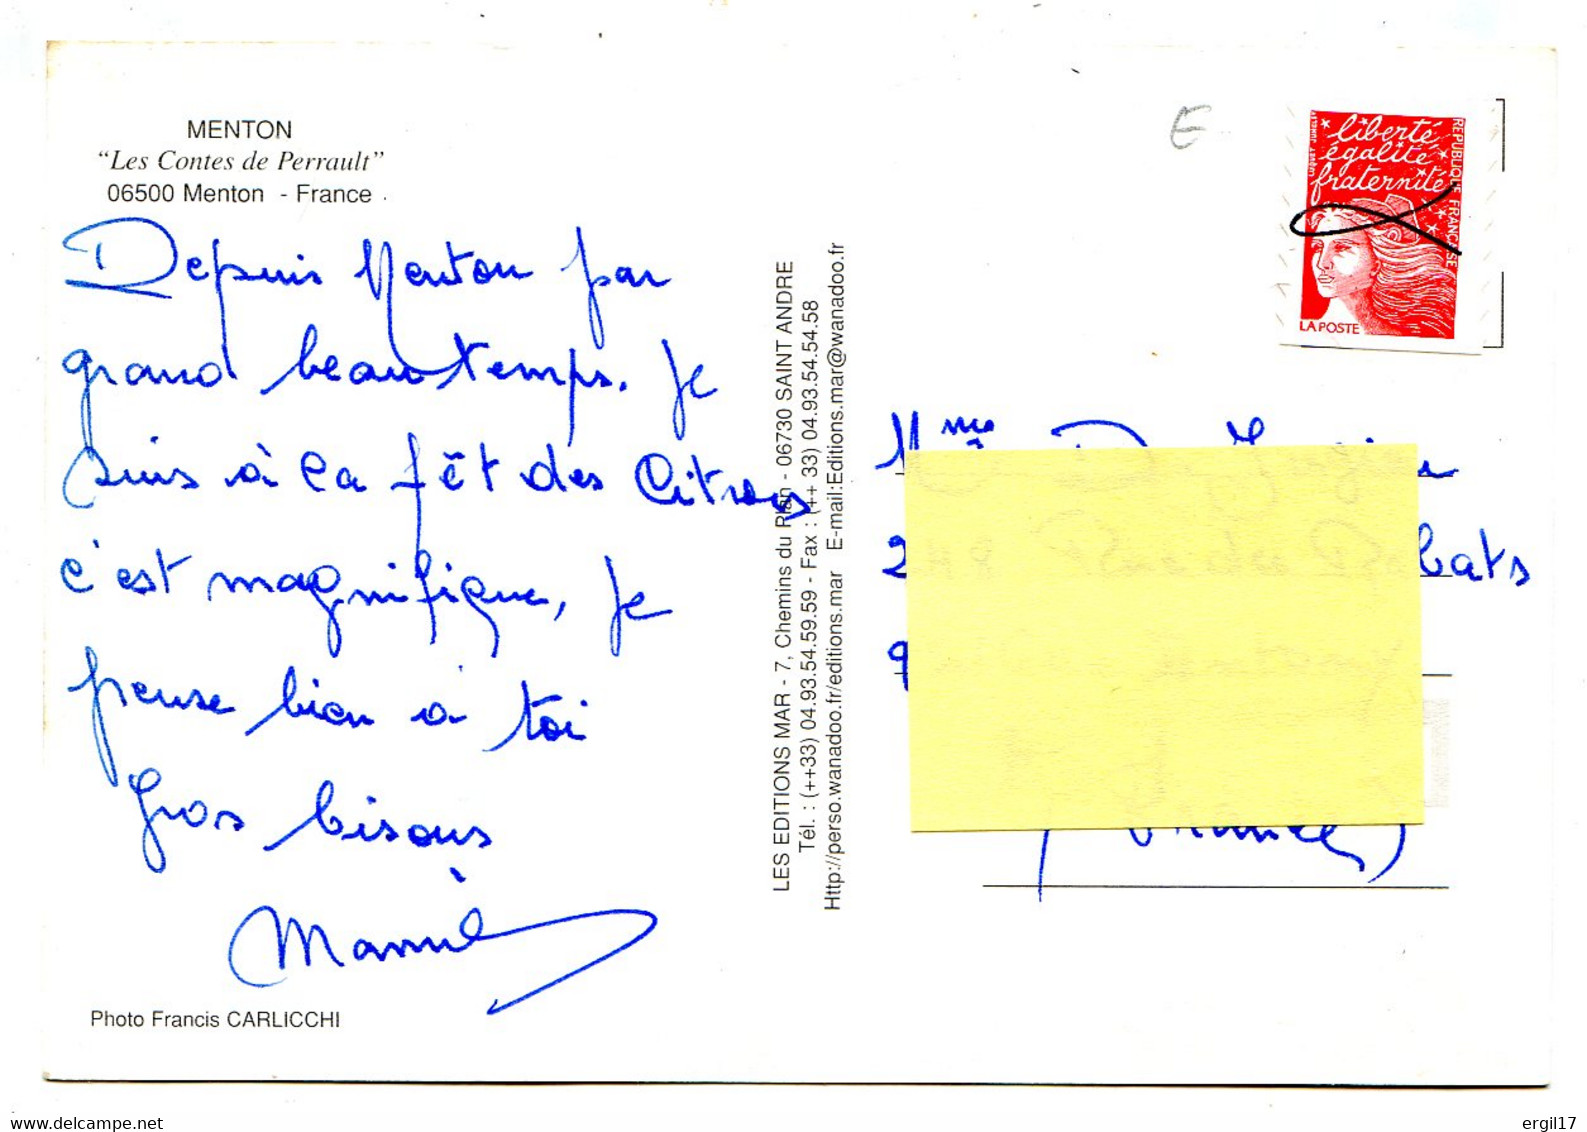 MENTON
“Les Contes de Perrault”
06500 Menton - France
Depuis Menton par
grand beau temps. Je
suis à la fêt des Citrons
c'est magnifique, je
pense bien à toi
Gros bisous
Photo Francis CARLICCHI
LES EDITIONS MAR - 7, Chemins du Plan - 06730 SAINT ANDRE
Tél. : (++33) 04.93.54.59.59 - Fax : (++ 33) 04.93.54.54.58
Http://perso.wanadoo.fr/editions.mar E-mail:Editions.mar@wanadoo.fr
E
liberté
égalité
fraternité
REPUBLIQUE FRANÇAISE
LA POSTE
Mme
2
bats
9
www.delcampe.net
ergil17